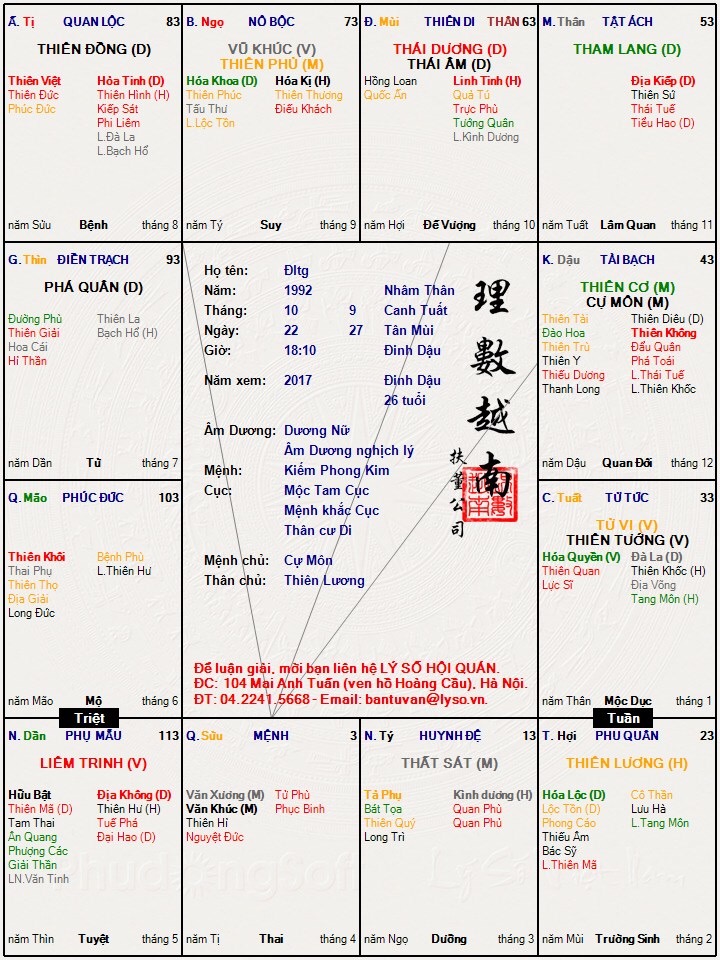 Ấ. Tị QUAN LỘC 83
THIÊN ĐỒNG (D)
Thiên Việt Hỏa Tinh (D)
Thiên Đức Thiên Hình (H)
Phúc Đức Kiếp Sát
Phi Liêm
L.Đà La
L.Bạch Hổ
năm Sửu Bệnh tháng 8
B. Ngọ NÔ BỘC 73
VŨ KHÚC (V)
THIÊN PHỦ (M)
Hóa Khoa (D) Hóa Kị (H)
Thiên Phúc Thiên Thương
Tấu Thư Điếu Khách
L.Lộc Tồn
năm Tý Suy tháng 9
Đ. Mùi THIÊN DI THÂN 63
THÁI DƯƠNG (D)
THÁI ÂM (D)
Hồng Loan Linh Tinh (H)
Quốc Ấn Quả Tú
Trực Phù
Tướng Quân
L.Kình Dương
năm Hợi Đế Vượng tháng 10
M. Thân TẬT ÁCH 53
THAM LANG (D)
Địa Kiếp (D)
Thiên Sứ
Thái Tuế
Tiểu Hao (D)
năm Tuất Lâm Quan tháng 11
G. Thìn ĐIỀN TRẠCH 93
PHÁ QUÂN (D)
Đường Phù Thiên La
Thiên Giải Bạch Hổ (H)
Hoa Cái
Hỉ Thần
năm Dần Tử tháng 7
Họ tên: Đltg
Năm: 1992 Nhâm Thân
Tháng: 10 9 Canh Tuất
Ngày: 22 27 Tân Mùi
Giờ: 18:10 Đinh Dậu
Năm xem: 2017 Đinh Dậu
26 tuổi
Âm Dương: Dương Nữ
Âm Dương nghịch lý
Mệnh: Kiếm Phong Kim
Cục: Mộc Tam Cục
Mệnh khắc Cục
Thân cư Di
Mệnh chủ: Cự Môn
Thân chủ: Thiên Lương
理數越南
扶董公司
Để luận giải, mời bạn liên hệ LÝ SỐ HỘI QUÁN.
ĐC: 104 Mai Anh Tuấn (ven hồ Hoàng Cầu), Hà Nội.
ĐT: 04.2241.5668 - Email: bantuvan@lyso.vn.
K. Dậu TÀI BẠCH 43
THIÊN CƠ (M)
CỰ MÔN (M)
Thiên Tài Thiên Diêu (D)
Đào Hoa Thiên Không
Thiên Trù Đẩu Quân
Thiên Y Phá Toái
Thiếu Dương L.Thái Tuế
Thanh Long L.Thiên Khốc
năm Dậu Quan Đới tháng 12
Q. Mão PHÚC ĐỨC 103
Thiên Khôi Bệnh Phù
Thai Phụ L.Thiên Hư
Thiên Thọ
Địa Giải
Long Đức
năm Mão Mộ tháng 6
C. Tuất TỬ TỨC 33
TỬ VI (V)
THIÊN TƯỚNG (V)
Hóa Quyền (V) Đà La (D)
Thiên Quan Thiên Khốc (H)
Lực Sĩ Địa Võng
Tang Môn (H)
năm Thân Mộc Dục tháng 1
Triệt
Tuần
N. Dần PHỤ MẪU 113
LIÊM TRINH (V)
Hữu Bật Địa Không (D)
Thiên Mã (D) Thiên Hư (H)
Tam Thai Tuế Phá
Ân Quang Đại Hao (D)
Phượng Các
Giải Thần
LN.Văn Tinh
năm Thìn Tuyệt tháng 5
Q. Sửu MỆNH 3
Văn Xương (M) Tử Phù
Văn Khúc (M) Phục Binh
Thiên Hỉ
Nguyệt Đức
năm Tị Thai tháng 4
N. Tý HUYNH ĐỆ 13
THẤT SÁT (M)
Tả Phụ Kình dương (H)
Bát Tọa Quan Phù
Thiên Quý Quan Phủ
Long Trì
năm Ngọ Dưỡng tháng 3
T. Hợi PHU QUÂN 23
THIÊN LƯƠNG (H)
Hóa Lộc (D) Cô Thần
Lộc Tồn (D) Lưu Hà
Phong Cáo L.Tang Môn
Thiếu Âm
Bác Sỹ
L.Thiên Mã
năm Mùi Trường Sinh tháng 2